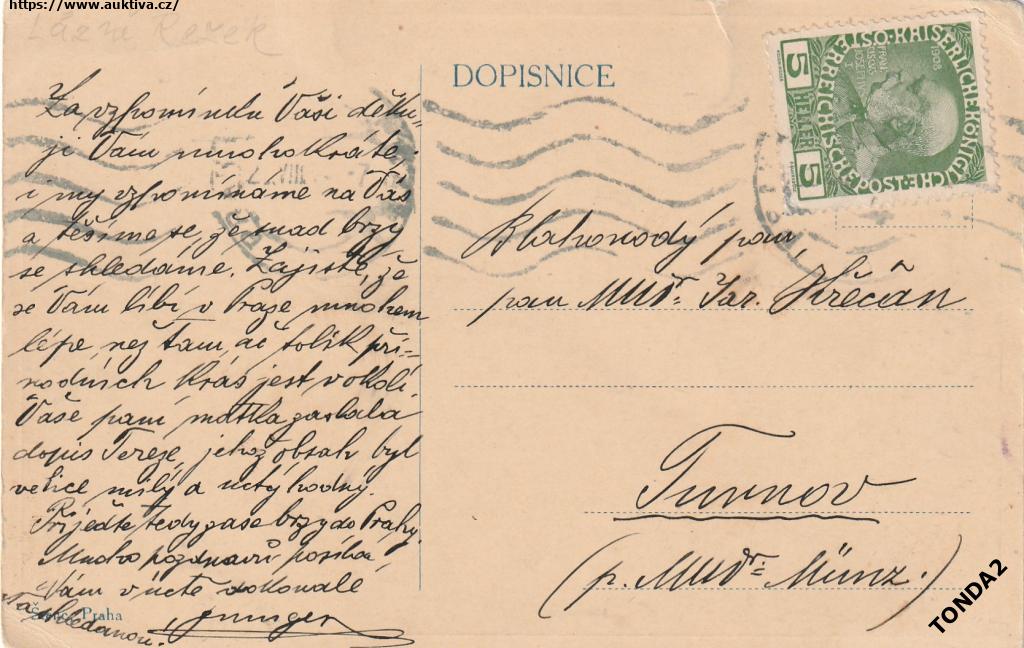 https://www.auktiva.cz/
Lázně Rezek
DOPISNICE
Za vzpomínku Vaši děku-
ji Vám mnohokráte,
i my vzpomínáme na Vás
a těšíme se, že snad brzy
se shledáme. Zajisté, že
se Vám líbí v Praze mnohem
lépe, než tam, ač tolik pří-
rodních krás jest v okolí.
Vaše paní matka zaslala
dopis Tereze, jehož obsah byl
velice milý a úctyhodný.
Přijeďte tedy zase brzy do Prahy.
Mnoho pozdravů posílá
Vám v úctě dokonalé
Na shledanou!
Praha
KAISERLICHE KÖNIGLICHE
ÖSTERREICHISCHE POST
1908
5 HELLER 5
Blahorodý pan,
pan MUDr. Jar. Křečan
Turnov
(p. MUDr. Münz.)
TONDA2